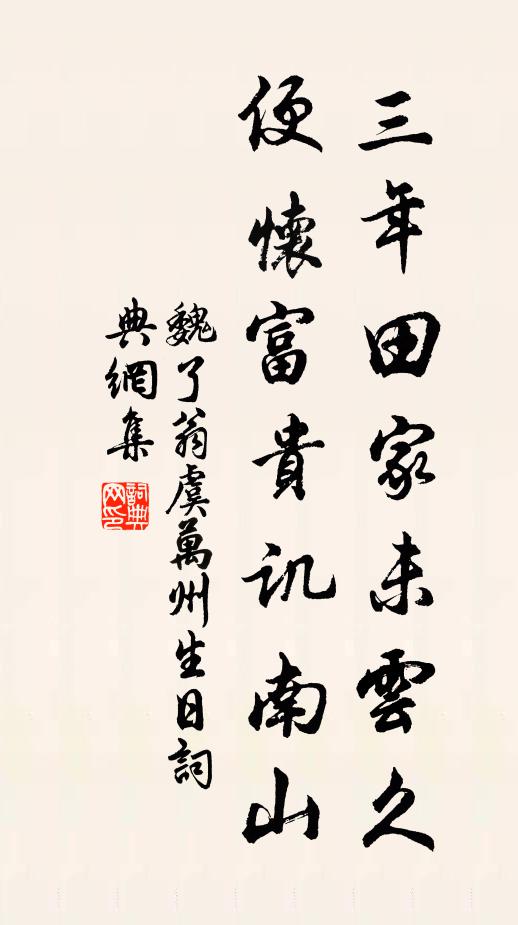 三年田家未雲久
便懷富貴讥南山
魏了翁虞萬州生日詞
典網集
詞典
网印